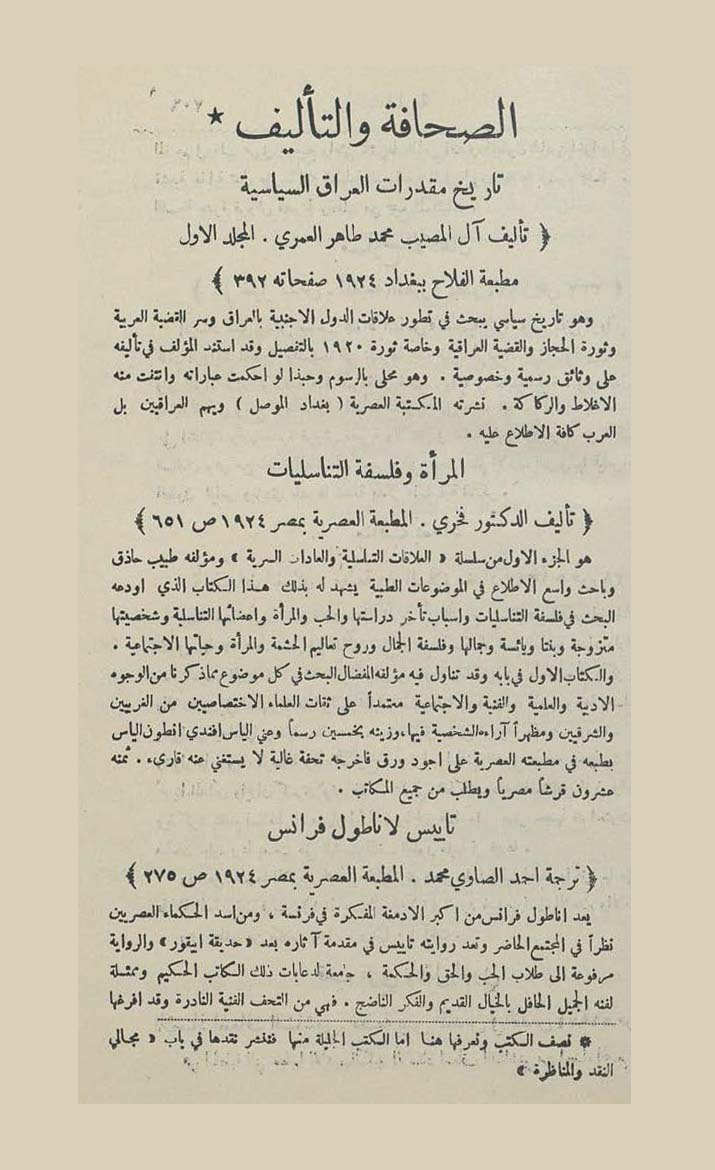 الصحافة والتأليف ★
تاريخ مقدرات العراق السياسية
﴿ تأليف آل المصيب محمد طاهر العمري . المجلد الاول
مطبعة الفلاح ببغداد ١٩٢٤ صفحاته ٣٩٢ ﴾
وهو تاريخ سياسي يبحث في تطور علاقات الدول الاجنبية بالعراق وسر القضية العربية
وثورة الحجاز والقضية العراقية وخاصة ثورة ١٩٢٠ بالتفصيل وقد استند المؤلف في تأليفه
على وثائق رسمية وخصوصية . وهو محلى بالرسوم وحبذا لو احكمت عباراته وانتفت منه
الاغلاط والركاكة . نشرته المكتبة العصرية ( بغداد الموصل ) ويهم العراقيين بل
العرب كافة الاطلاع عليه .
المرأة وفلسفة التناسليات
﴿ تأليف الدكتور فخري . المطبعة العصرية بمصر ١٩٢٤ ص ٦٥١ ﴾
هو الجزء الاول من سلسلة « العلاقات التناسلية والعادات السرية » ومؤلفه طبيب حاذق
وباحث واسع الاطلاع في الموضوعات الطبية يشهد له بذلك هذا الكتاب الذي اودعه
البحث في فلسفة التناسليات واسباب تأخر دراستها والحب والمرأة واعضائها التناسلية وشخصيتها
متزوجة وبنتا وبائسة وجمالها وفلسفة الجمال وروح تعاليم الحشمة والمرأة وحياتها الاجتماعية .
والكتاب الاول في بابه وقد تناول فيه مؤلفه المفضال البحث في كل موضوع مما ذكرنا من الوجوه
الادبية والعلمية والفنية والاجتماعية معتمداً على ثقات العلماء الاختصاصيين من الغربيين
والشرقيين ومظهراً آراءه الشخصية فيها، وزينه بخمسين رسماً وعني الياس افندي انطون الياس
بطبعه في مطبعته العصرية على اجود ورق فاخرجه تحفة غالية لا يستغني عنه قاريء . ثمنه
عشرون قرشاً مصرياً ويطلب من جميع المكاتب .
تاييس لاناطول فرانس
﴿ ترجمة احمد الصاوي محمد . المطبعة العصرية بمصر ١٩٢٤ ص ٢٧٥ ﴾
يعد اناطول فرانس من اكبر الادمغة المفكرة في فرنسة ، ومن اسد الحكماء العصريين
نظراً في المجتمع الحاضر وتعد روايته تاييس في مقدمة آثاره بعد « حديقة ابيقور » والرواية
مرفوعة الى طلاب الحب والحق والحكمة ، جامعة لدعابات ذلك الكاتب الحكيم وممثلة
لفنه الجميل الحافل بالخيال القديم والفكر الناضج . فهي من التحف الفنية النادرة وقد افرغها
* نصف الكتب ونعرفها هنا اما الكتب الجليلة منها فننشر نقدها في باب « مجالي
النقد والمناظرة »